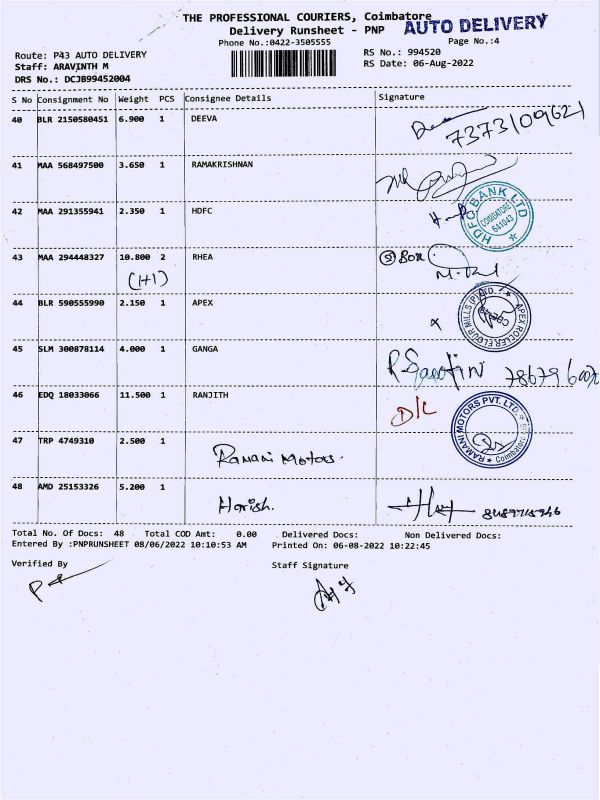 THE PROFESSIONAL COURIERS, Coimbatore
AUTO DELIVERY
Delivery Runsheet - PNP
Phone No.:0422-3505555
Page No.:4
Route: P43 AUTO DELIVERY
RS No.: 994520
Staff: ARAVINTH M
RS Date: 06-Aug-2022
DRS No.: DCJB99452004
S No Consignment No Weight PCS Consignee Details Signature
40 BLR 2150580451 6.900 1 DEEVA
7373109621
41 MAA 568497500 3.650 1 RAMAKRISHNAN
42 MAA 291355941 2.350 1 HDFC
HDFC BANK LTD
COIMBATORE
641043
43 MAA 294448327 10.800 2 RHEA
(1+1)
Box
44 BLR 590555990 2.150 1 APEX
APEX ROLLER FLOUR MILLS (P) LTD.
45 SLM 300878114 4.000 1 GANGA
46 EDQ 18033066 11.500 1 RANJITH
D/C
RAMANI MOTORS PVT. LTD.
Coimbatore
47 TRP 4749310 2.500 1
Ramani Motors.
48 AMD 25153326 5.200 1
Harish.
Total No. Of Docs: 48 Total COD Amt: 0.00 Delivered Docs: Non Delivered Docs:
Entered By :PNPRUNSHEET 08/06/2022 10:10:53 AM Printed On: 06-08-2022 10:22:45
Verified By Staff Signature